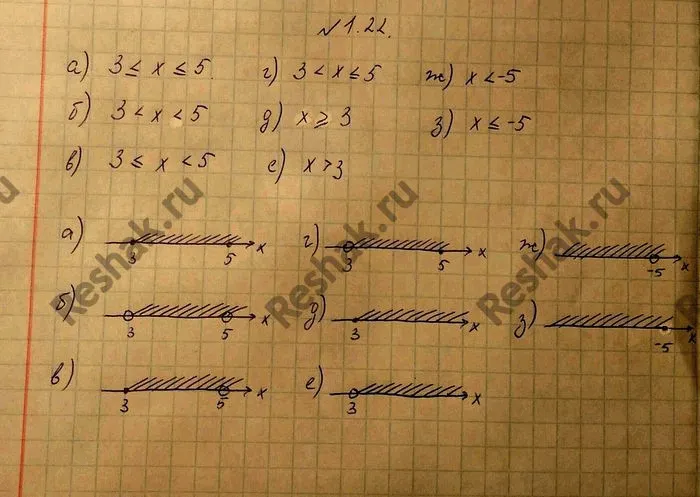 №1.22.
а) 3 ≤ x ≤ 5. г) 3 < x ≤ 5 ж) x < -5
б) 3 < x < 5 д) x ≥ 3 з) x ≤ -5
в) 3 ≤ x < 5 е) x > 3
а) 3 5 x г) 3 5 x ж) -5 x
б) 3 5 x д) 3 x з) -5 x
в) 3 5 x е) 3 x
Reshak.ru Reshak.ru Reshak.ru